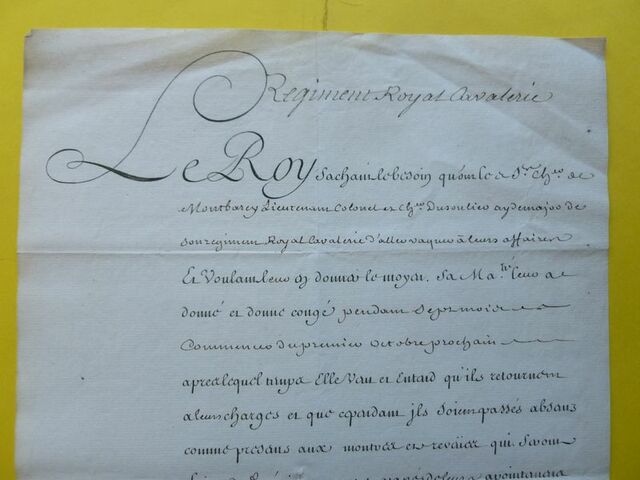 Regiment Royal Cavalerie
Le Roy sachant le besoin qu'ont le Sr. Cher. de
Montbarey Lieutenant Colonel et Cher. Dusoulier aydemajor de
son regiment Royal Cavalerie d'aller vaquer à leurs affaires
Et Voulant leur en donner le moyen. Sa Maté. leur a
donné et donne congé pendant Sept mois
Commencer du premier Octobre prochain
apres lequel temps Elle Veut et Entend qu'ils retournent
a leurs charges et que cependant jls soient passés absens
comme presens aux montres et reveües qui seront